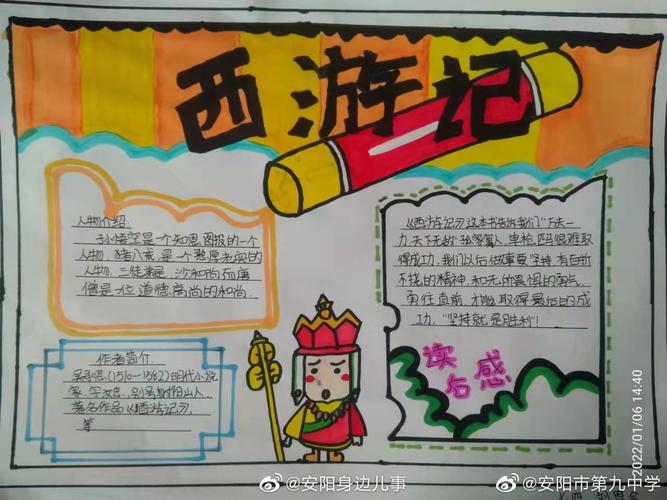 西游记
人物介绍:
孙悟空是一个知恩图报的一个
人物,猪八戒是一个憨厚老实的
人物.三徒弟是沙和尚而唐
僧是一位道德高尚的和尚.
作者简介
吴承恩(1510-1582)明代小说
家,字汝忠,别号射阳山人,
著名作品《西游记》,
等
《西游记》这本书告诉我们"下定
力,天下无敌"
得成功,我们以后做事要坚持,有百折
不挠的精神,和无所畏惧的勇气,
勇往直前,才能取得最后的成
功,"坚持就是胜利"!
读后感
2022/01/06 14:40
@安阳身边儿事
@安阳市第九中学